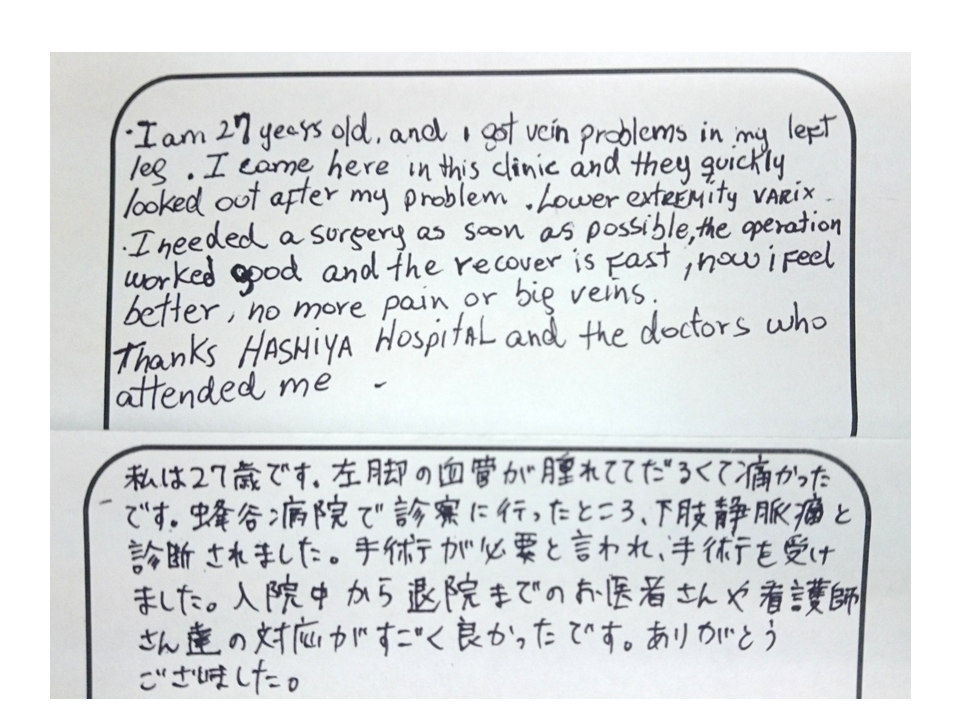 ・I am 27 years old, and i got vein problems in my left
leg . I came here in this clinic and they quickly
looked out after my problem . Lower extREMity VARIX .
・I needed a surgery as soon as possible, the operation
worked good and the recover is Fast , now i Feel
better, no more pain or big veins.
Thanks HASHiYA HOSpitAL and the doctors who
attended me -
私は27歳です。左脚の血管が腫れててだるくて痛かった
です。蜂谷病院で診察に行ったところ、下肢静脈瘤と
診断されました。手術が必要と言われ、手術を受け
ました。入院中から退院までのお医者さんや看護師
さん達の対応がすごく良かったです。ありがとう
ございました。